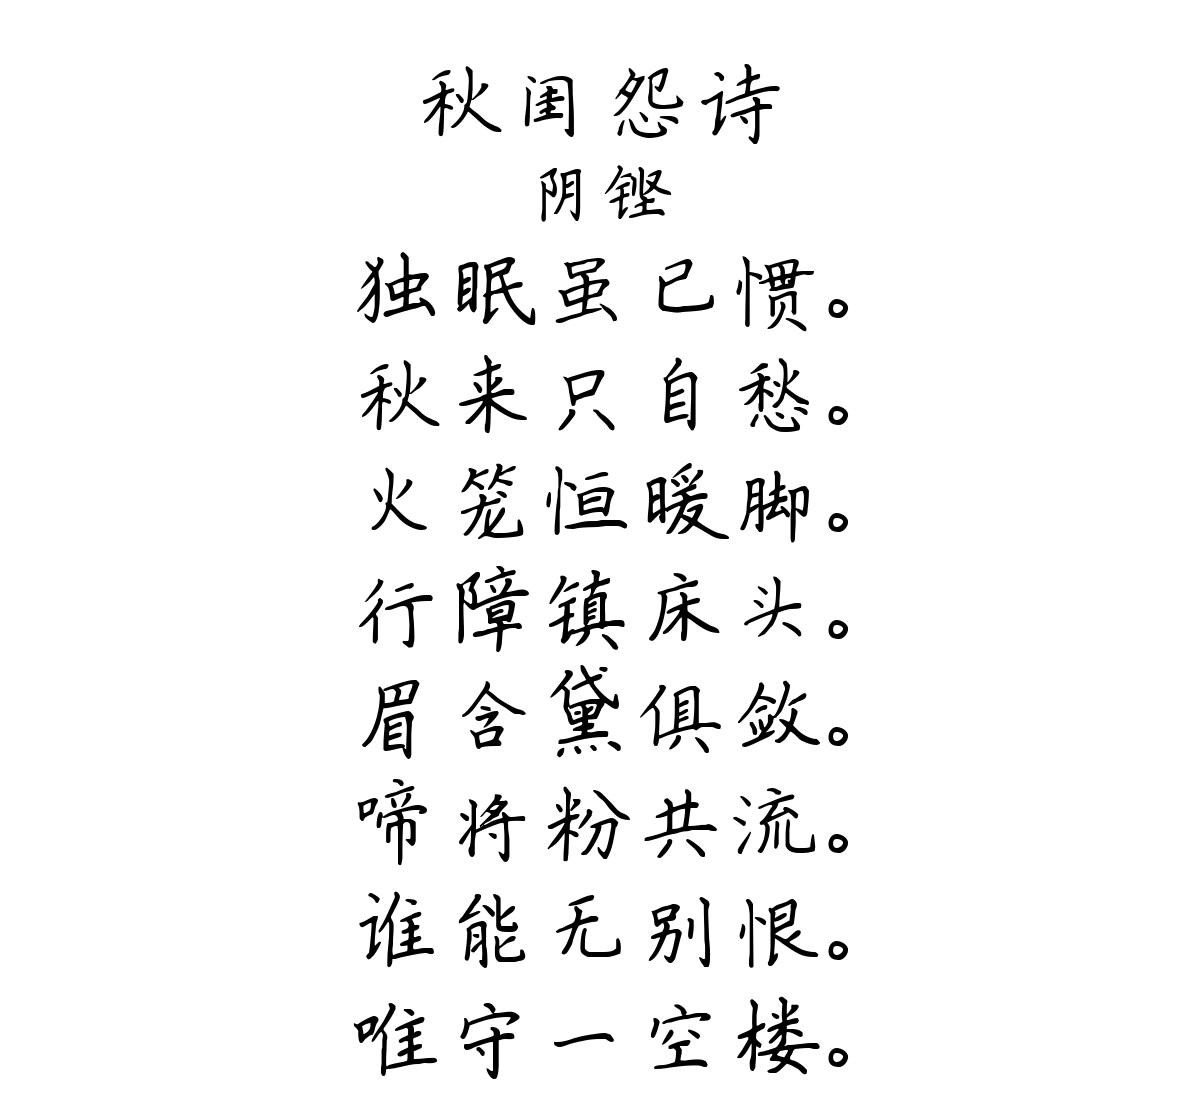 秋闺怨诗
阴铿
独眠虽已惯。
秋来只自愁。
火笼恒暖脚。
行障镇床头。
眉含黛俱敛。
啼将粉共流。
谁能无别恨。
唯守一空楼。